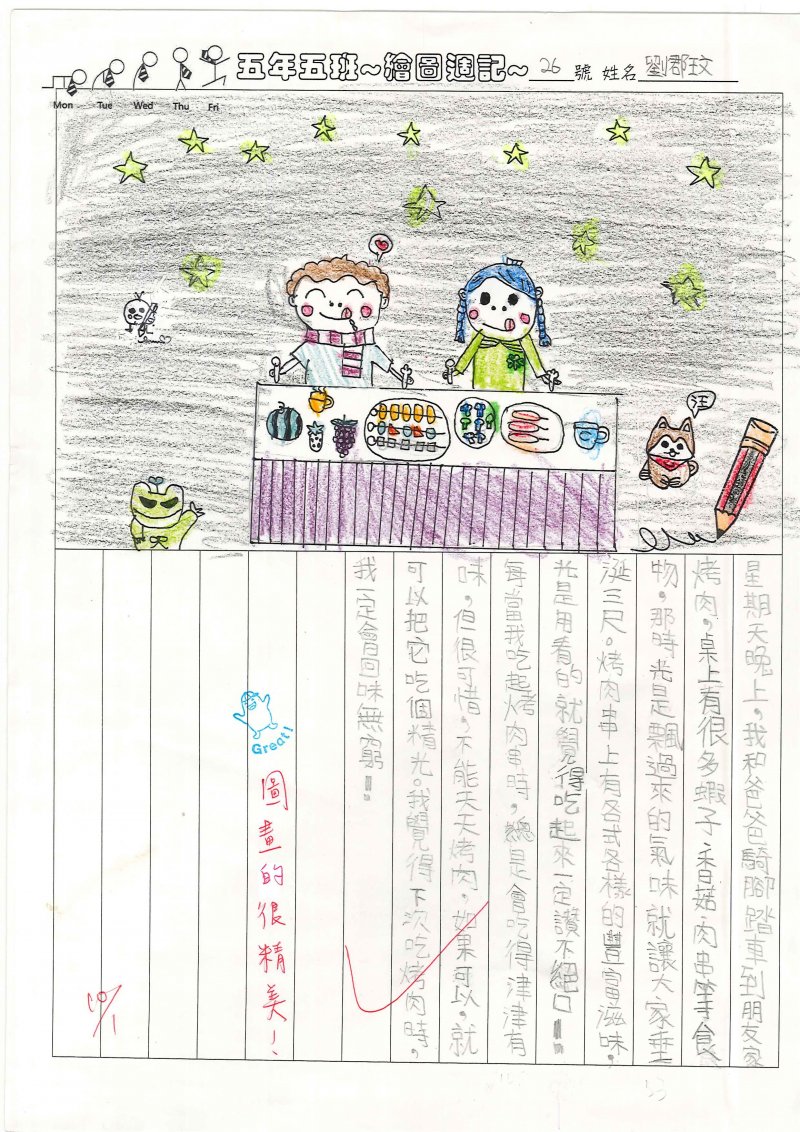 五年五班~繪圖週記~ 26 號 姓名 劉郡玟
Mon Tue Wed Thu Fri
汪
星期天晚上，我和爸爸騎腳踏車到朋友家
烤肉，桌上有很多蝦子、香菇、肉串等食
物，那時光是飄過來的氣味就讓大家垂
涎三尺。烤肉串上有各式各樣的豐富滋味，
光是用看的就覺得吃起來一定讚不絕口！
每當我吃起烤肉串時，總是會吃得津津有
味，但很可惜，不能天天烤肉，如果可以，就
可以把它吃個精光。我覺得下次吃烤肉時，
我一定會回味無窮！
Great!
圖畫的很精美！
10/1